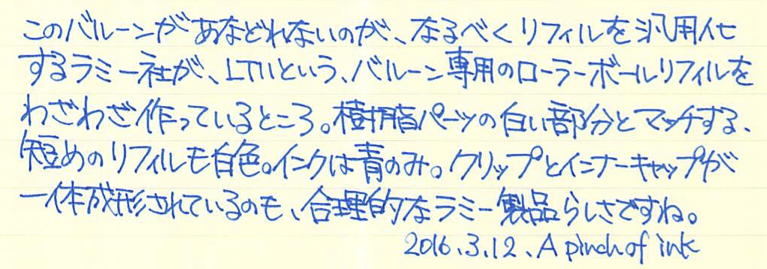 このバルーンがあなどれないのが、なるべくリフィルを汎用化
するラミー社が、LT11という、バルーン専用のローラーボールリフィルを
わざわざ作っているところ。樹脂パーツの白い部分とマッチする、
短めのリフィルも白色。インクは青のみ。クリップとインナーキャップが
一体成形されているのも、合理的なラミー製品らしさですね。
2016.3.12. A pinch of ink